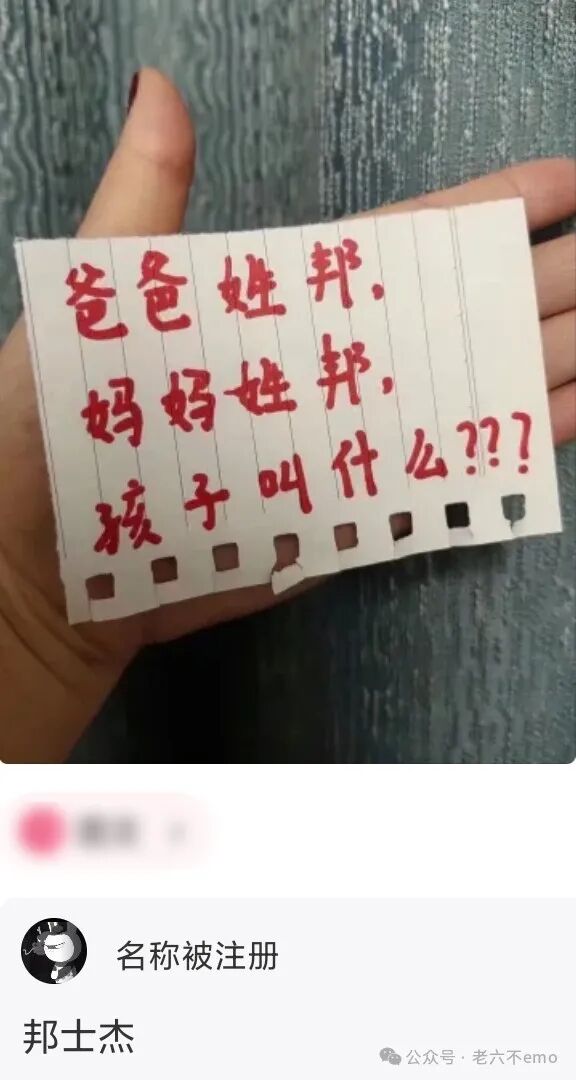 爸爸姓邦,
妈妈姓邦,
孩子叫什么???
名称被注册
邦士杰
公众号·老六不emo